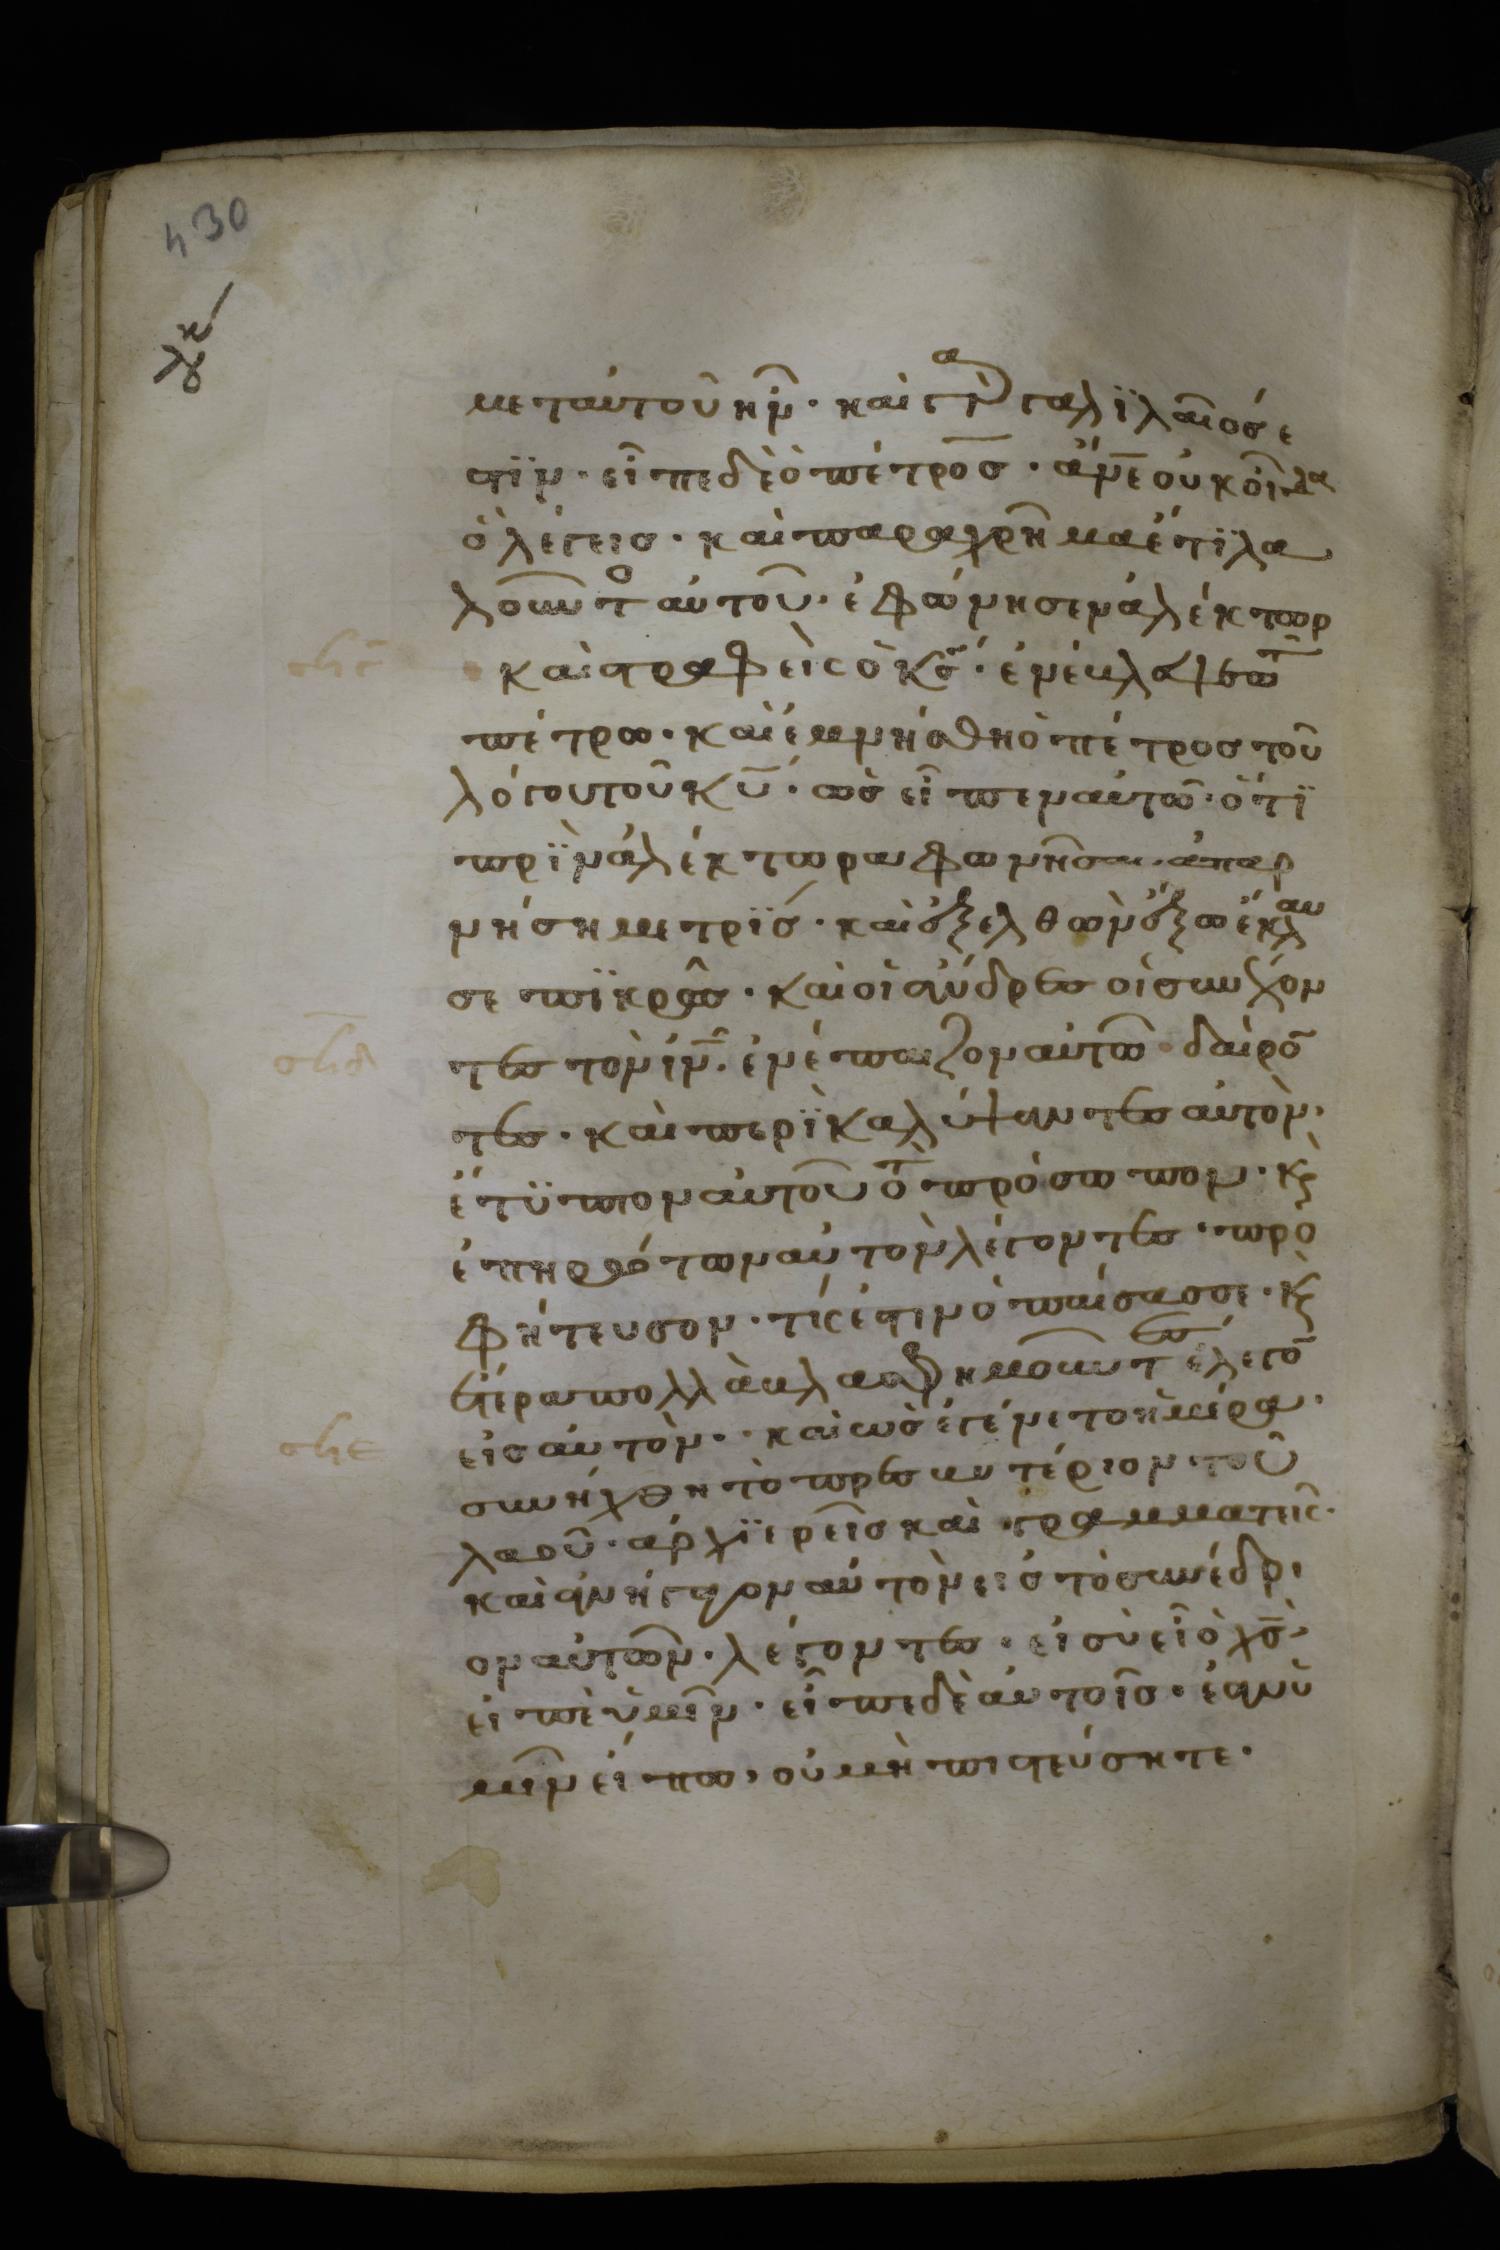 430
λουκ
μεταυτοῦ ἦν· καὶ γὰρ γαλϊλαῖοσ ἐ
στϊν· εἶπε δὲ ὁ πέτροσ· ἄν̅ε οὐκ οἶδα
ὃ λέγεισ· καὶ παραχρῆμα ἔτϊ λα
λοῦντο αὐτοῦ· ἐφώνησεν ἀλέκτωρ
καὶ στραφεὶς ὁ κ̅σ· ἐνέβλεψε τῶ
πέτρω· καὶ ἐμνήσθη ὁ πέτροσ τοῦ
λόγου τοῦ κ̅υ· ὡσ εἶπεν αὐτῶ· ὅτϊ
πρϊν ἀλέκτορα φωνῆσαι· ἀπαρ
νήση με τρϊσ· καὶ ἐξελθὼν ἔξω ἔκλαυ
σε πϊκρῶσ· καὶ οἱ ἄνδρεσ οἱ συνέχον
τεσ τὸν ι̅ν· ἐνέπαιζον αὐτῶ δαίρο̅
τεσ· καὶ περϊκαλύψαντεσ αὐτὸν·
ἔτϋπτον αὐτοῦ τὸ πρόσωπον· κ̀
ἐπηρώτων αὐτὸν λέγοντεσ· προ
φήτευσον· τίς ἐστιν ὁ παίσασ σε· κ̀
ἕτερα πολλὰ βλασφημοῦντεσ ἔλεγο̅
εἰσ αὐτὸν· καὶ ὡσ ἐγένετο ἡμέρα·
συνήχθη τὸ πρεσβυτέριον τοῦ
λαοῦ· ἀρχϊερεῖσ καὶ γραμματεῖς·
καὶ ἀνήγαγον αὐτὸν εἰσ τὸ συνέδρι
ον αὐτῶν· λέγοντεσ· εἰ σὺ εἶ ὁ χ̅σ·
εἰπὲ ὑμῖν· εἶπε δὲ αὐτοῖσ· ἐὰν ὑ
μῖν εἴπω, οὐ μὴ πιστεύσητε·
σϟγ
σϟδ
σϟε